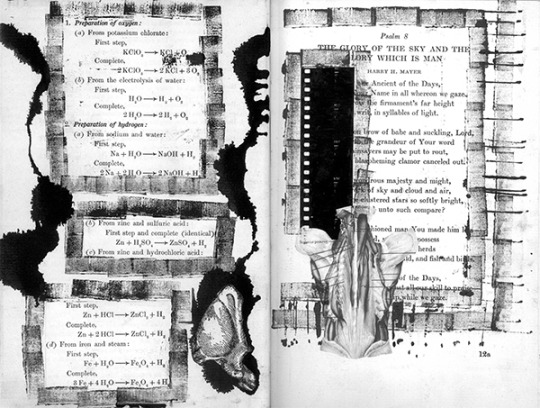 1. Preparation of oxygen:
(a) From potassium chlorate:
First step,
KClO₃ ⟶ KCl + O
Complete,
2 KClO₃ ⟶ 2 KCl + 3 O
(b) From the electrolysis of water:
First step,
H₂O ⟶ H₂ + O₂
Complete,
2 H₂O ⟶ 2 H₂ + O₂
2. Preparation of hydrogen:
(a) From sodium and water:
First step,
Na + H₂O ⟶ NaOH + H₂
Complete,
2 Na + 2 H₂O ⟶ 2 NaOH + H
(b) From zinc and sulfuric acid:
First step and complete (identical)
Zn + H₂SO₄ ⟶ ZnSO₄ + H₂
(c) From zinc and hydrochloric acid:
First step,
Zn + HCl ⟶ ZnCl₂ + H₂
Complete,
Zn + 2 HCl ⟶ ZnCl₂ + H₂
(d) From iron and steam:
First step,
Fe + H₂O ⟶ Fe₃O₄ + H₂
Complete,
3 Fe + 4 H₂O ⟶ Fe₃O₄ + 4 H
Psalm 8
THE GLORY OF THE SKY AND THE
GLORY WHICH IS MAN
HARRY H. MAYER
Ancient of the Days,
Name in all whereon we gaze,
the firmament's far height
writ, in syllables of light.
brow of babe and suckling, Lord,
the grandeur of Your word
may be put to rout,
blaspheming clamor canceled out.
majesty and might,
of sky and cloud and air,
clustered stars so softly bright,
unto such compare?
man You made him
possess
herds
and fish and
of the Days,
all our skill to
while we gaze.
12s